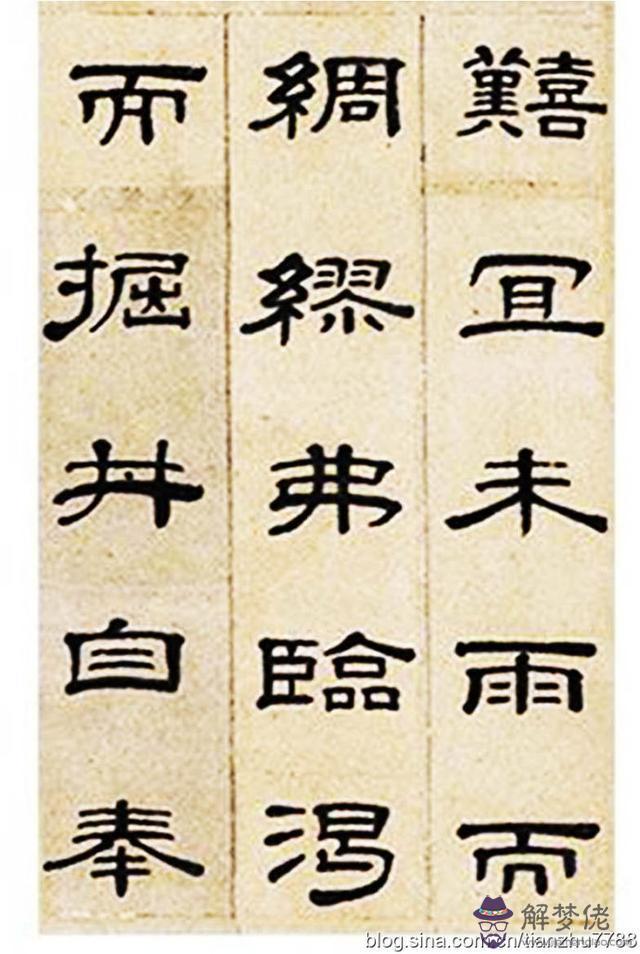 囏宜未雨而
綢繆弗臨渴
而掘井自奉
解梦佬
blog.sina.com.cn/tianzhu7788